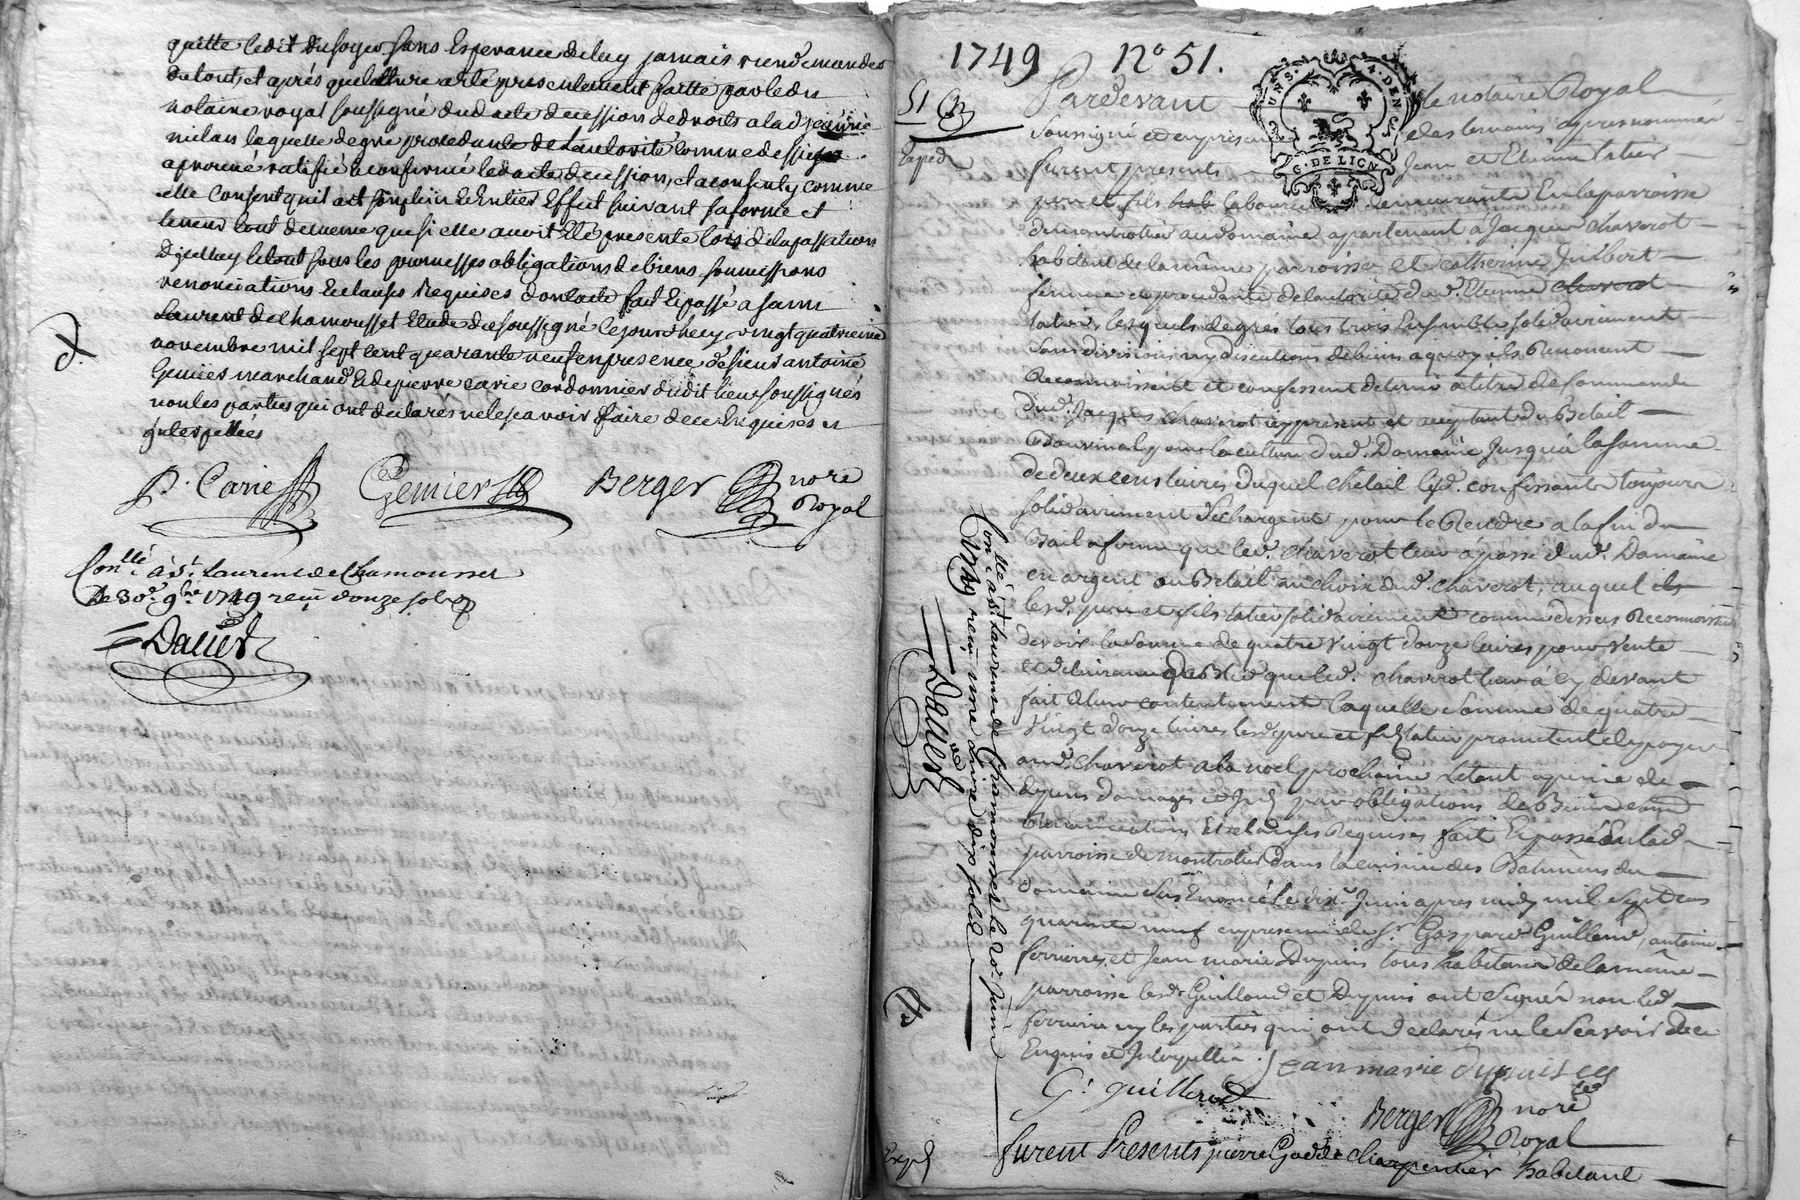 quitte ledit du soyer sans Esperance de luy jamais rien demander
du tout, et aprés que lecture a eté presentement faitte par led.
notaire royal soussigné dud acte de cession de droits a lad
milan laquelle de gré procedante de Lautorité comme dessus
aprouvé ratifié et confirmé led acte de cession, et a consenty comme
elle consent qu'il ait son plein et Entier Effet suivant sa forme et
teneur tout de meme que si elle avoit Eté presente lors de la passation
D'icelluy le tout sous les promesses obligations de biens soumissions
renonciations et clauses Requises dont acte fait et passé a saint
Laurent de Chamousset Etude du soussigné le jourdhuy vingt quatrieme
novembre mil sept cent quarante neuf en presence de sieur antoine
Gemier marchand et de pierre carie cordonnier dudit lieu soussignés
non les parties qui ont declarés ne le scavoir faire de ce Enquises et
jnterpellées
P. Carie Gemier Berger nore
Royal
Conllé a St. Laurent de Chamousset
Le 30e. 9bre 1749 reçu douze sols
Daller
1749 N° 51.
51
Exped
Pardevant le notaire Royal
soussigné et en presence des temoins apres nommés
furent presents Jean et Etienne
pere et fils laboureurs demeurants En la parroisse
de montrotier au domaine apartenant a Jacques chaverot
habitant de la même parroisse et Catherine Guibert
femme et procedante de lautorité dud. Etienne chaverot
lesquels de gré tous trois Ensemble solidairement
sans division ny discution de biens a quoy ils Renoncent
Reconnoissent et confessent detenir a titre de Commande
dud. Jacques chaverot icy present et acceptant du Betail
pour la culture dud. Domaine jusqu'à la somme
de deux cens livres duquel chetail lesd. confessants toujours
solidairement se chargent pour le Rendre a la fin du
Bail a ferme que led. chaverot leur à passé dud. Domaine
en argent ou Betail au choix dud. chaverot, auquel
lesd. pere et fils solidairement comme dessus Reconnoissent
devoir la somme de quatre vingt douze livres pour vente
et delivrance de Bled que led. chaverot leur à cy devant
fait a leur contentement laquelle somme de quatre
vingt douze livres lesd. pere et fils promettent de payer
aud. chaverot a la noel prochaine le tout a peine de
depens domages et par obligations de Biens
Renonciations Et clauses Requises fait Et passé En lad
parroisse de montrotier dans la cuisine des Batimens du
domaine sus Enoncé le dix. Juin apres midy mil sept cens
quarante neuf en presence de Sr. Gaspard Guilleau, antoine
ferriere, et Jean marie Dupuis tous habitans de la même
parroisse lesd. Guilloud et Dupuis ont signés non led
ferriere ny les parties qui ont declarés ne le scavoir de ce
Enquis et Interpellés
Jean marie dupuis
G. guilleud
Berger nore
Royal
Conllé a St. Laurent de Chamousset le 20. Juin
1749 reçu une livre dix sols
Daller
Exped
furent Presents pierre charpentier habitant